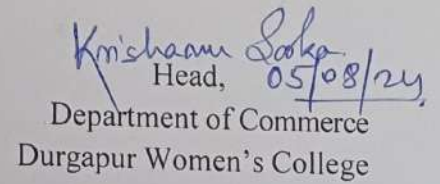 Krishaanu
Head, 05/08/24
Department of Commerce
Durgapur Women's College